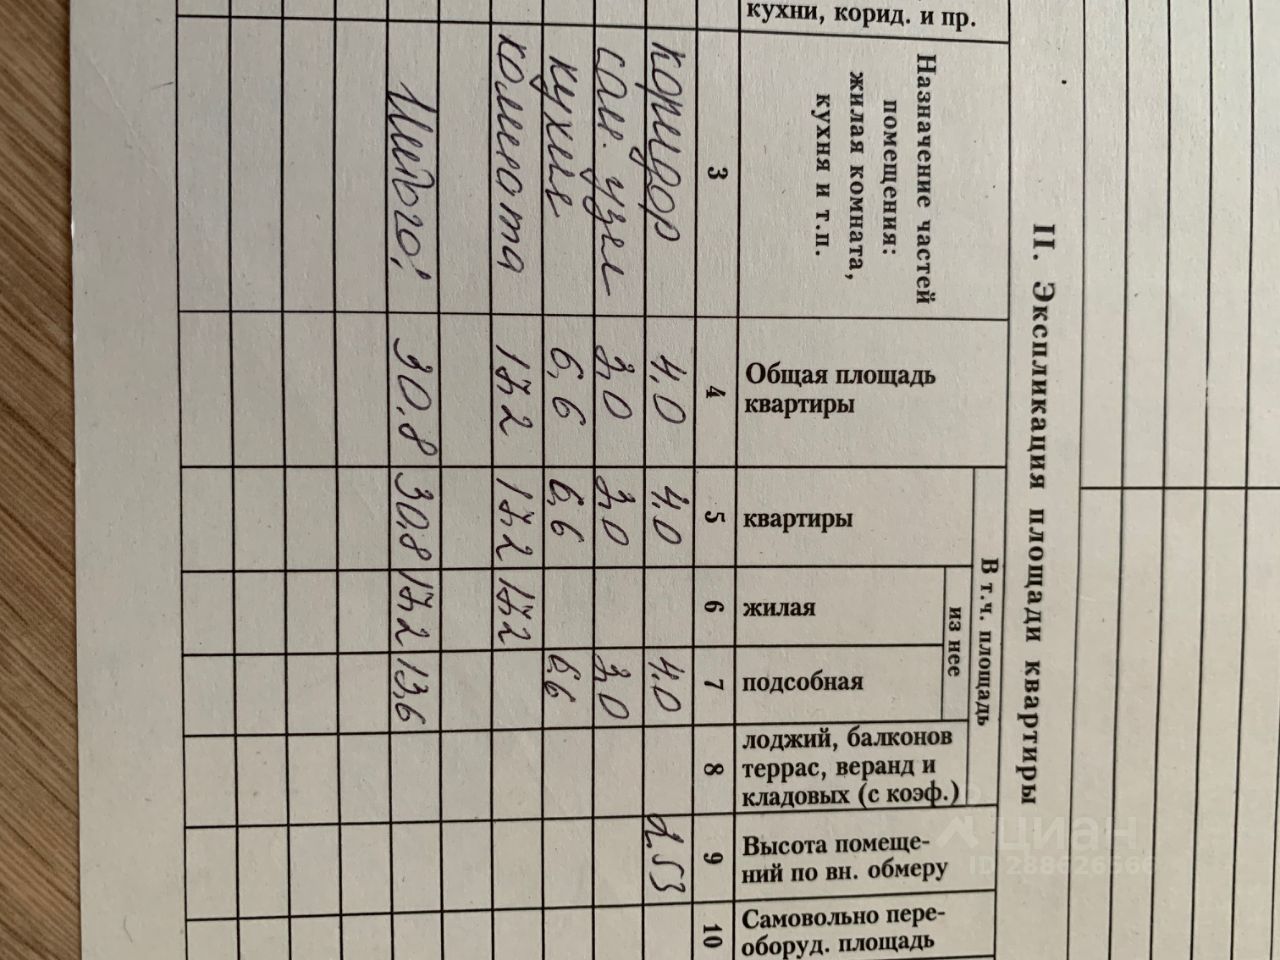 II. Экспликация площади квартиры
кухни, корид. и пр.
Назначение частей
помещения:
жилая комната,
кухня и т.п.
Общая площадь
квартиры
В т.ч. площадь
квартиры
из нее
жилая
подсобная
лоджий, балконов
террас, веранд и
кладовых (с коэф.)
Высота помеще-
ний по вн. обмеру
Самовольно пере-
оборуд. площадь
3 4 5 6 7 8 9 10
коридор 4,0 4.0 4.0 2,53
сан. узел 3,0 3,0 3,0
кухня 6,6 6,6 6.6
комната 17,2 17,2 17,2
Итого: 30.8 30,8 17,2 13,6
циан
ID 288626566